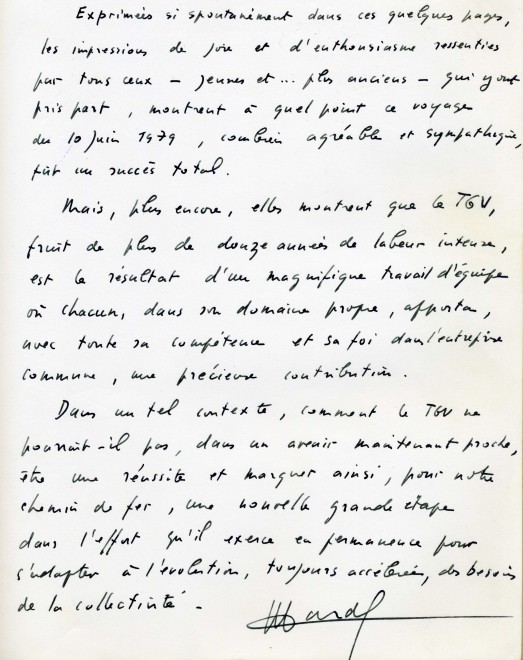 Exprimées si spontanément dans ces quelques pages,
les impressions de joie et d'enthousiasme ressenties
par tous ceux - jeunes et ... plus anciens - qui y ont
pris part, montrent à quel point ce voyage
du 10 Juin 1979, combien agréable et sympathique,
fût un succès total.
Mais, plus encore, elles montrent que le TGV,
fruit de plus de douze années de labeur intense,
est le résultat d'un magnifique travail d'équipe
où chacun, dans son domaine propre, apporta,
avec toute sa compétence et sa foi dans l'entreprise
commune, une précieuse contribution.
Dans un tel contexte, comment le TGV ne
pourrait-il pas, dans un avenir maintenant proche,
être une réussite et marquer ainsi, pour notre
chemin de fer, une nouvelle grande étape
dans l'effort qu'il exerce en permanence pour
s'adapter à l'évolution, toujours accélérée, des besoins
de la collectivité -